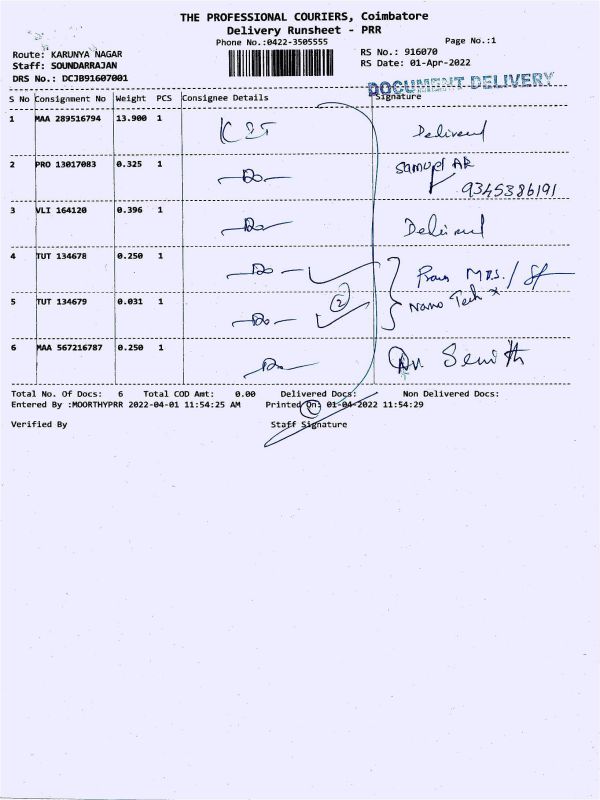 THE PROFESSIONAL COURIERS, Coimbatore
Delivery Runsheet - PRR
Phone No.:0422-3505555
Page No.:1
Route: KARUNYA NAGAR
RS No.: 916070
Staff: SOUNDARRAJAN
RS Date: 01-Apr-2022
DRS No.: DCJB91607001
DOCUMENT DELIVERY
S No Consignment No Weight PCS Consignee Details Signature
1 MAA 289516794 13.900 1 Delivered
2 PRO 13017083 0.325 1 Do Samuel AR
9345386191
3 VLI 164120 0.396 1 Do Delivered
4 TUT 134678 0.250 1 Do
2 Nano Tech
5 TUT 134679 0.031 1 Do
6 MAA 567216787 0.250 1 Do
Total No. Of Docs: 6 Total COD Amt: 0.00 Delivered Docs: Non Delivered Docs:
Entered By :MOORTHYPRR 2022-04-01 11:54:25 AM Printed On: 01-04-2022 11:54:29
Verified By Staff Signature